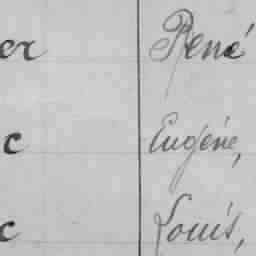 er René
c Eugéne,
c Louis,